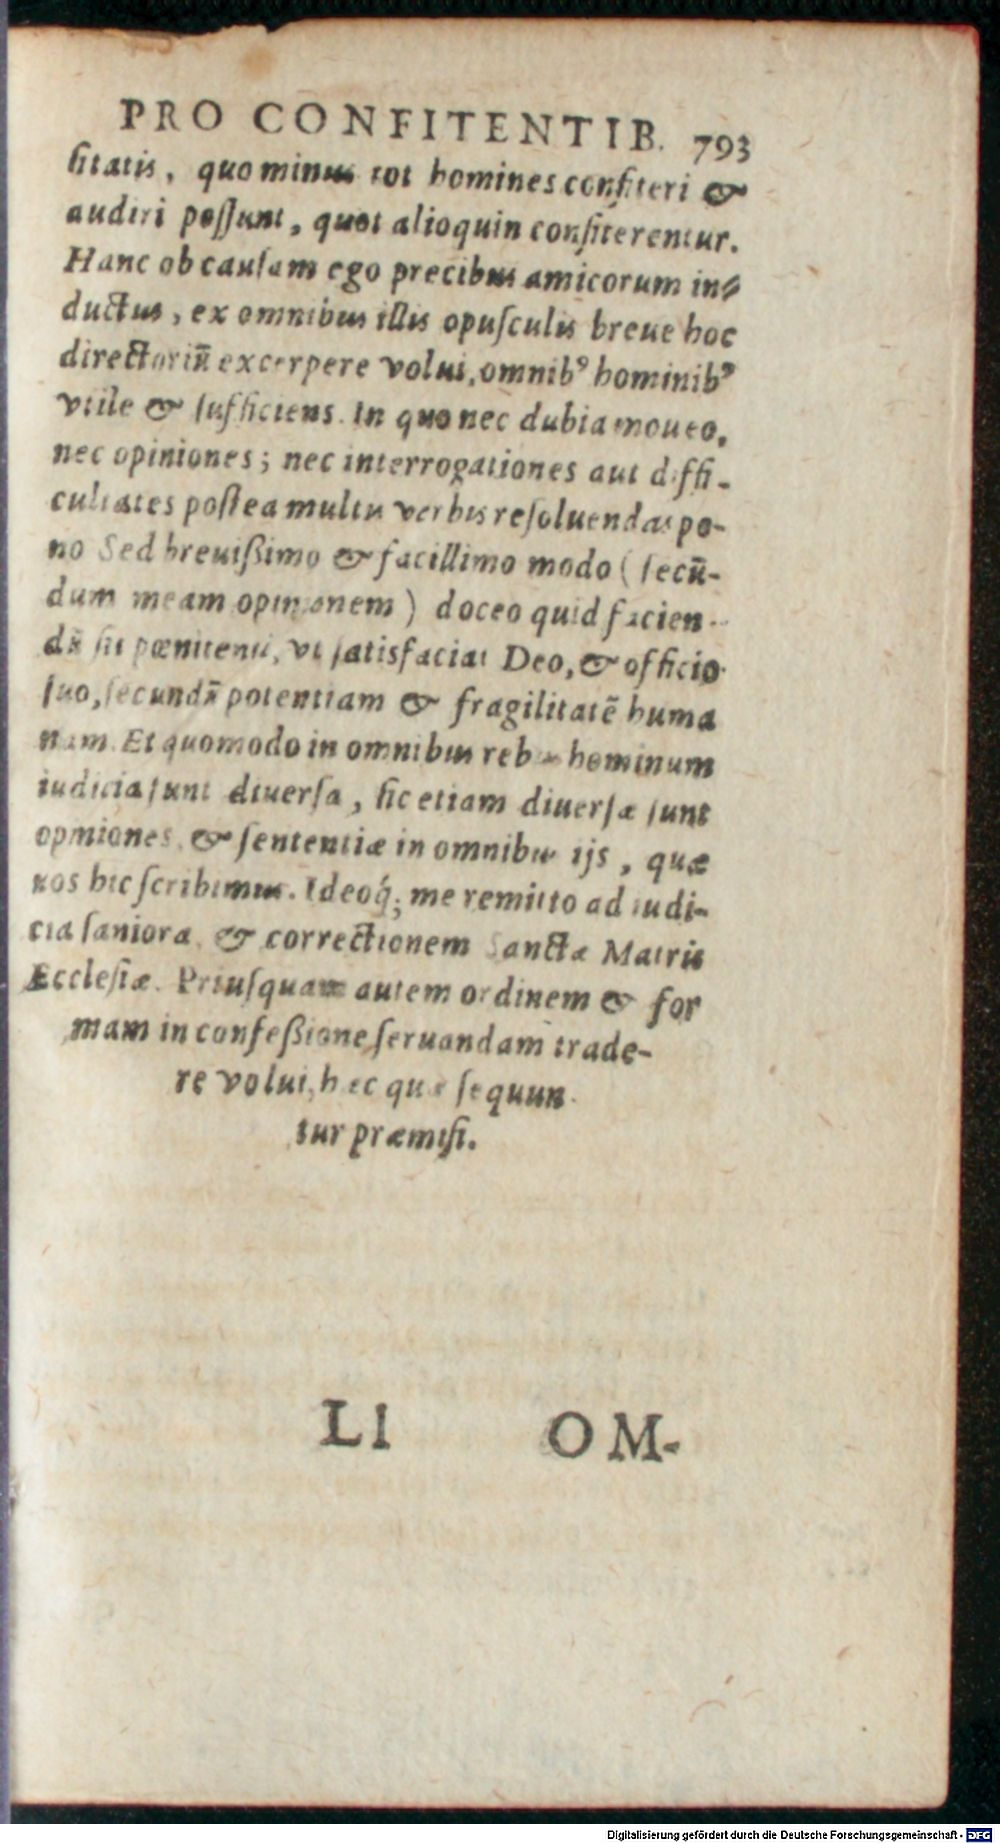 PRO CONFITENTIB. 793
ſitatis, quo minus tot homines confiteri &
audiri poſſunt, quot alioquin confiterentur.
Hanc ob cauſam ego precibus amicorum in⸗
ductus, ex omnibus illis opuſculis breue hoc
directoriũ excerpere volui, omnibꝰ hominibꝰ
vtile & ſufficiens. In quo nec dubia moueo,
nec opiniones; nec interrogationes aut diffi-
cultates poſtea multis verbis reſoluendas po-
no Sed breuißimo & facillimo modo (ſecũ-
dum meam opinionem) doceo quid facien-
dũ ſit pœnitenti, vt ſatisfaciat Deo, & officio
ſuo, ſecundũ potentiam & fragilitatẽ huma
nam. Et quomodo in omnibus rebus hominum
iudicia ſunt diuerſa, ſic etiam diuerſæ ſunt
opiniones, & ſententiæ in omnibus ijs, quæ
nos hic ſcribimus. Ideoq́; me remitto ad iudi-
cia ſaniora, & correctionem Sanctæ Matris
Eccleſiæ. Priuſquam autem ordinem & for
mam in confeßione ſeruandam trade-
re volui, hæc quæ ſequun
tur præmiſi.
LI OM-
Digitalisierung gefördert durch die Deutsche Forschungsgemeinschaft - DFG